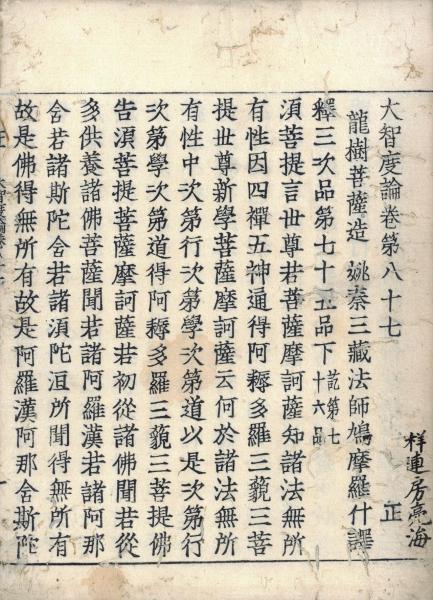 大智度論卷第八十七 正
龍樹菩薩造 姚秦三藏法師鳩摩羅什譯
釋三次品第七十五品下 訖第七十六品
須菩提言世尊若菩薩摩訶薩知諸法無所
有性因四禪五神通得阿耨多羅三藐三菩
提世尊新學菩薩摩訶薩云何於諸法無所
有性中次第行次第學次第道以是次第行
次第學次第道得阿耨多羅三藐三菩提佛
告須菩提菩薩摩訶薩若初從諸佛聞若從
多供養諸佛菩薩聞若諸阿羅漢若諸阿那
含若諸斯陀含若諸須陀洹所聞得無所有
故是佛得無所有故是阿羅漢阿那含斯陀
房亮海